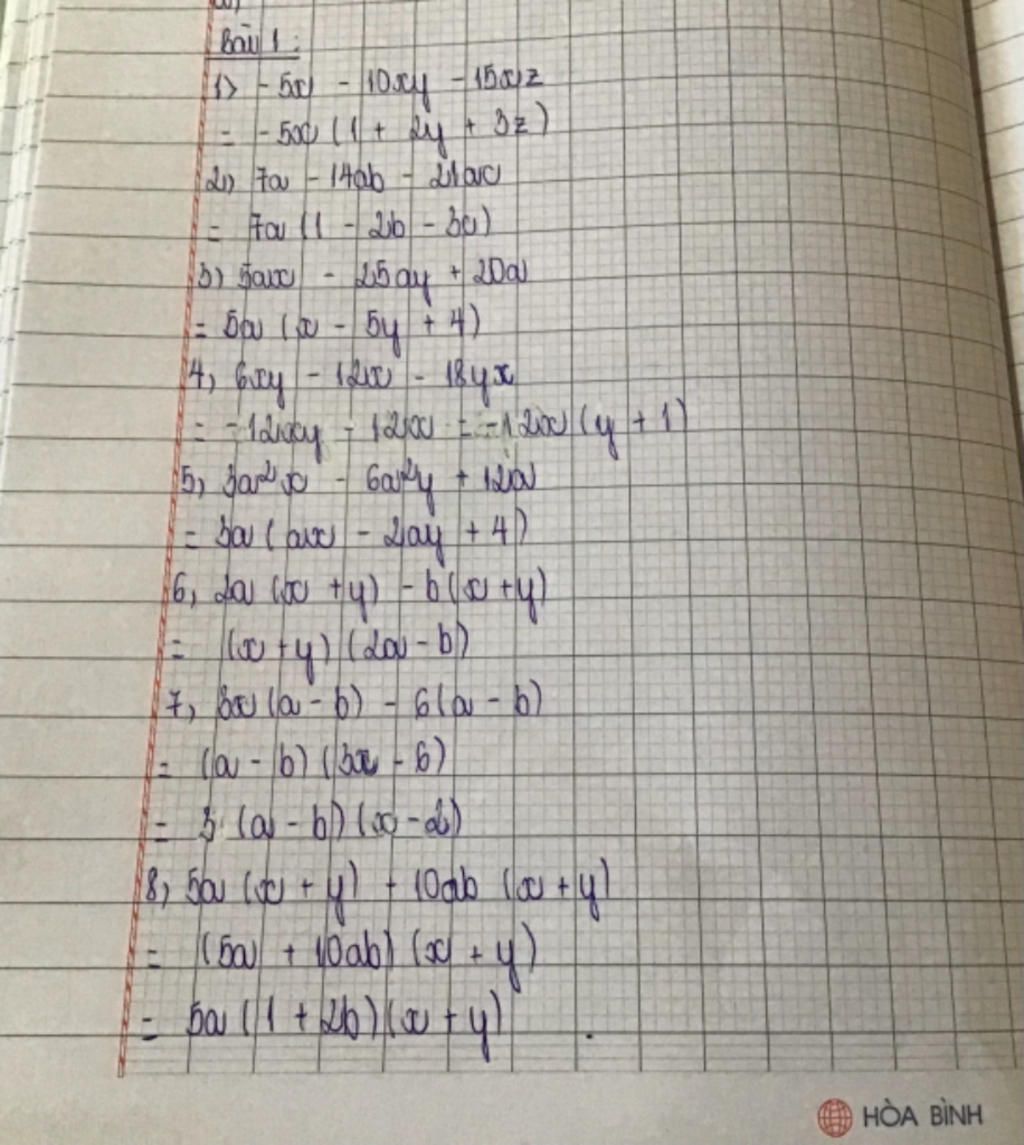 Bài 1:
1) -5x - 10xy - 15xz
= -5x (1 + 2y + 3z)
2) 7a - 14ab - 21ac
= 7a (1 - 2b - 3c)
3) 5ax - 25ay + 20a
= 5a (x - 5y + 4)
4, 6xy - 12x - 18yx
= -12xy - 12x = -12x (y + 1)
5, 3a²x - 6a²y + 12a
= 3a (ax - 2ay + 4)
6, 2a (x + y) - b (x + y)
= (x + y) (2a - b)
7, 3x (a - b) - 6 (a - b)
= (a - b) (3x - 6)
= 3 (a - b) (x - 2)
8, 5a (x + y) + 10ab (x + y)
= (5a + 10ab) (x + y)
= 5a (1 + 2b) (x + y) .
HÒA BÌNH